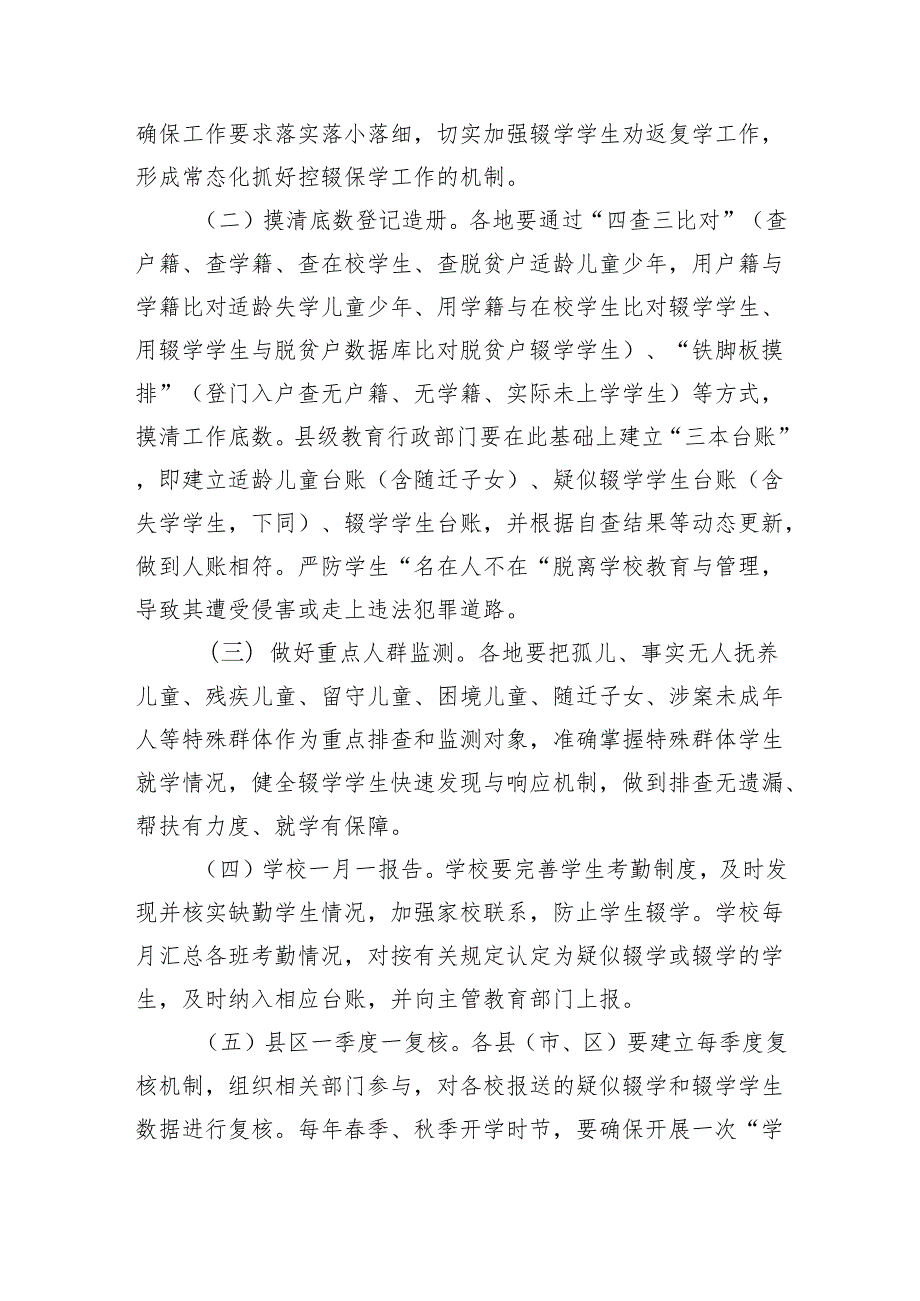 确保工作要求落实落小落细，切实加强辍学学生劝返复学工作，
形成常态化抓好控辍保学工作的机制。
（二）摸清底数登记造册。各地要通过“四查三比对”（查
户籍、查学籍、查在校学生、查脱贫户适龄儿童少年，用户籍与
学籍比对适龄失学儿童少年、用学籍与在校学生比对辍学学生、
用辍学学生与脱贫户数据库比对脱贫户辍学学生）、“铁脚板摸
排”（登门入户查无户籍、无学籍、实际未上学学生）等方式，
摸清工作底数。县级教育行政部门要在此基础上建立“三本台账”
，即建立适龄儿童台账（含随迁子女）、疑似辍学学生台账（含
失学学生，下同）、辍学学生台账，并根据自查结果等动态更新，
做到人账相符。严防学生“名在人不在“脱离学校教育与管理，
导致其遭受侵害或走上违法犯罪道路。
(三) 做好重点人群监测。各地要把孤儿、事实无人抚养
儿童、残疾儿童、留守儿童、困境儿童、随迁子女、涉案未成年
人等特殊群体作为重点排查和监测对象，准确掌握特殊群体学生
就学情况，健全辍学学生快速发现与响应机制，做到排查无遗漏、
帮扶有力度、就学有保障。
（四）学校一月一报告。学校要完善学生考勤制度，及时发
现并核实缺勤学生情况，加强家校联系，防止学生辍学。学校每
月汇总各班考勤情况，对按有关规定认定为疑似辍学或辍学的学
生，及时纳入相应台账，并向主管教育部门上报。
（五）县区一季度一复核。各县（市、区）要建立每季度复
核机制，组织相关部门参与，对各校报送的疑似辍学和辍学学生
数据进行复核。每年春季、秋季开学时节，要确保开展一次“学